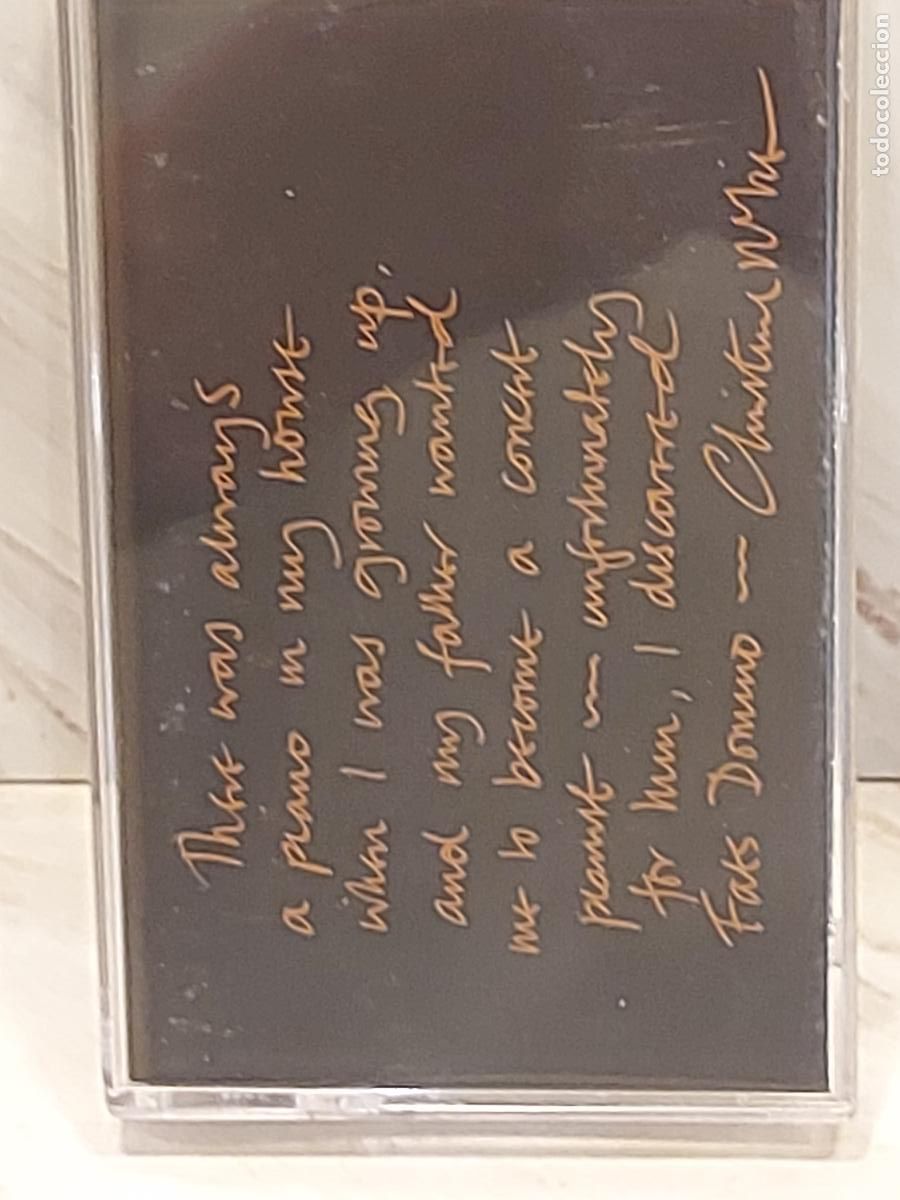 There was always
a piano in my house
when I was growing up,
and my father wanted
me to become a concert
pianist — unfortunately
for him, I discovered
Fats Domino — Christine McVie
todocoleccion